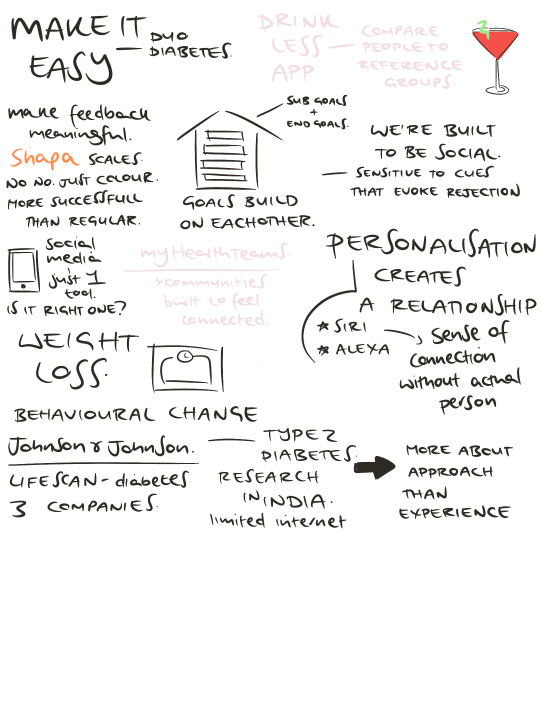 MAKE IT
EASY
DUO
DIABETES.
DRINK
LESS
APP
COMPARE
PEOPLE TO
REFERENCE
GROUPS.
make feedback
meaningful.
Shapa SCALES.
NO NO. JUST COLOUR.
MORE SUCCESSFULL
THAN REGULAR.
SUB GOALS
+
END GOALS.
GOALS BUILD
ON EACHOTHER.
WE'RE BUILT
TO BE SOCIAL.
— SENSITIVE TO CUES
THAT EVOKE REJECTION
social
media
just 1
tool.
IS IT RIGHT ONE?
myHealthTeams.
communities
built to feel
connected.
PERSONALISATION
CREATES
A RELATIONSHIP
★ SIRI
★ ALEXA
sense of
connection
without actual
person
WEIGHT
LOSS.
BEHAVIOURAL CHANGE
Johnson & Johnson.
LIFESCAN - diabetes
3 COMPANIES.
TYPE 2
DIABETES.
RESEARCH
IN INDIA.
limited internet
MORE ABOUT
APPROACH
THAN
EXPERIENCE